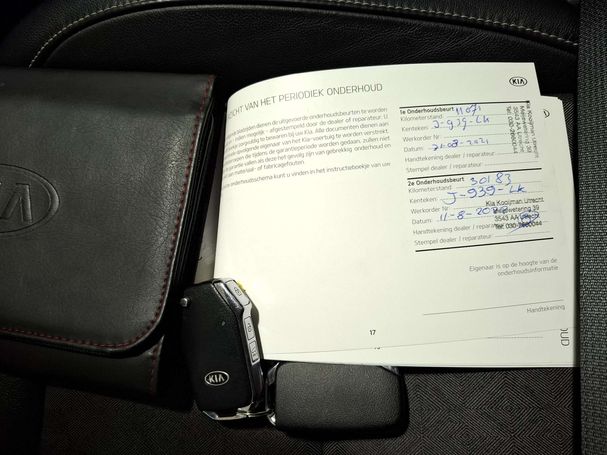 KIA
ZICHT VAN HET PERIODIEK ONDERHOUD
dienen de uitgevoerde onderhoudsbeurten te worden
afgestempeld door de dealer of reparateur. U
te bewaren bij uw Kia. Alle documenten dienen aan
eigenaar van het Kia-voertuig te worden verstrekt.
die tijdens de garantieperiode worden gedaan, zullen niet
vallen als deze het gevolg zijn van gebrekkig onderhoud en
materiaal- of fabricagefouten.
onderhoudsschema kunt u vinden in het instructieboekje van uw
1e Onderhoudsbeurt
Kilometerstand 11071
Kenteken: J-939-LK
Werkorder Nr
Datum: 21-08-2021
Handtekening dealer / reparateur
Stempel dealer / reparateur
2e Onderhoudsbeurt
Kilometerstand 30183
Kenteken: J-939-LK
Werkorder Nr
Datum: 11-8-2022
Handtekening dealer / reparateur
Stempel dealer / reparateur
Kia Kooijman Utrecht
39
3543 AA Utrecht
Tel: 030-
Eigenaar is op de hoogte van de
onderhoudsinformatie
Handtekening
17
OUD
KIA
KIA